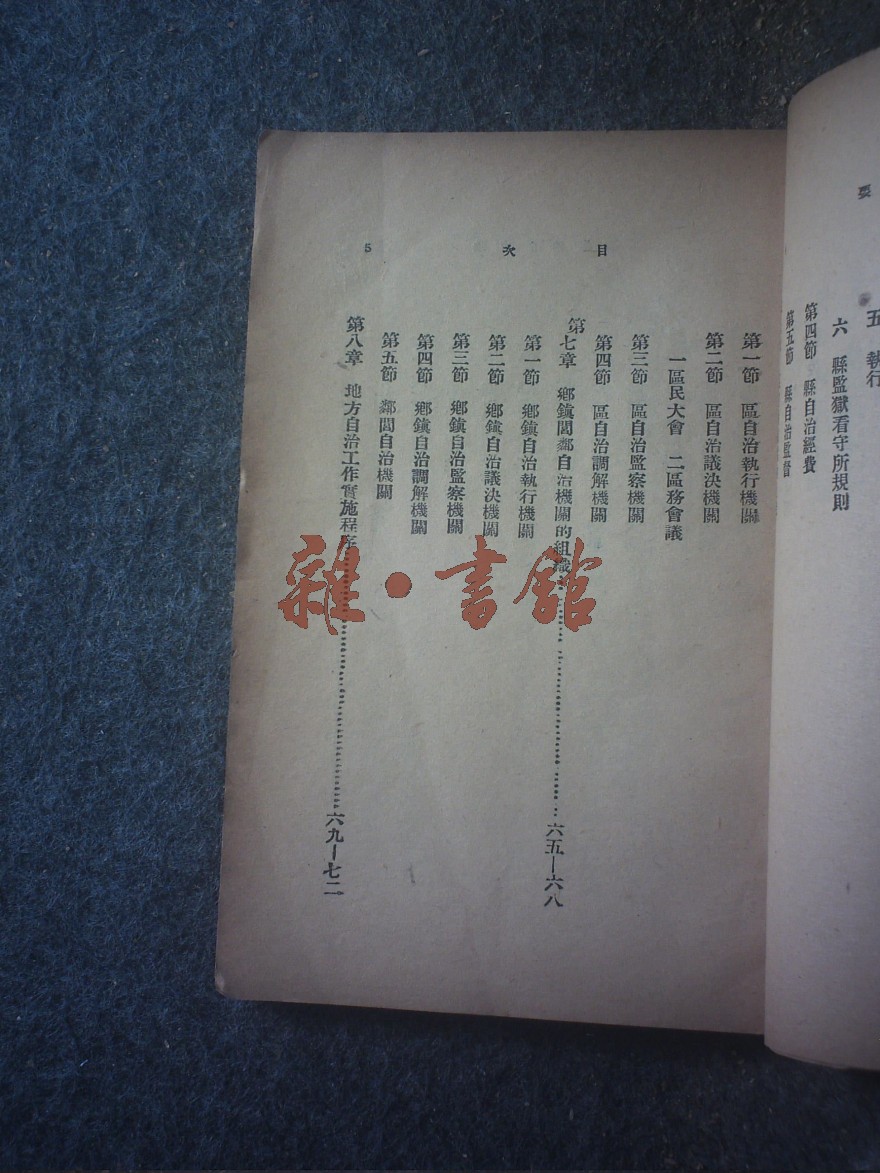 要
五 執行
六 縣監獄看守所規則
第四節 縣自治經費
第五節 縣自治監督
目次 5
第一節 區自治執行機關
第二節 區自治議決機關
一區民大會 二區務會議
第三節 區自治監察機關
第四節 區自治調解機關
第七章 鄉鎮閭鄰自治機關的組織……六五—六八
第一節 鄉鎮自治執行機關
第二節 鄉鎮自治議決機關
第三節 鄉鎮自治監察機關
第四節 鄉鎮自治調解機關
第五節 鄰閭自治機關
第八章 地方自治工作實施程序……六九—七二
雜·書館